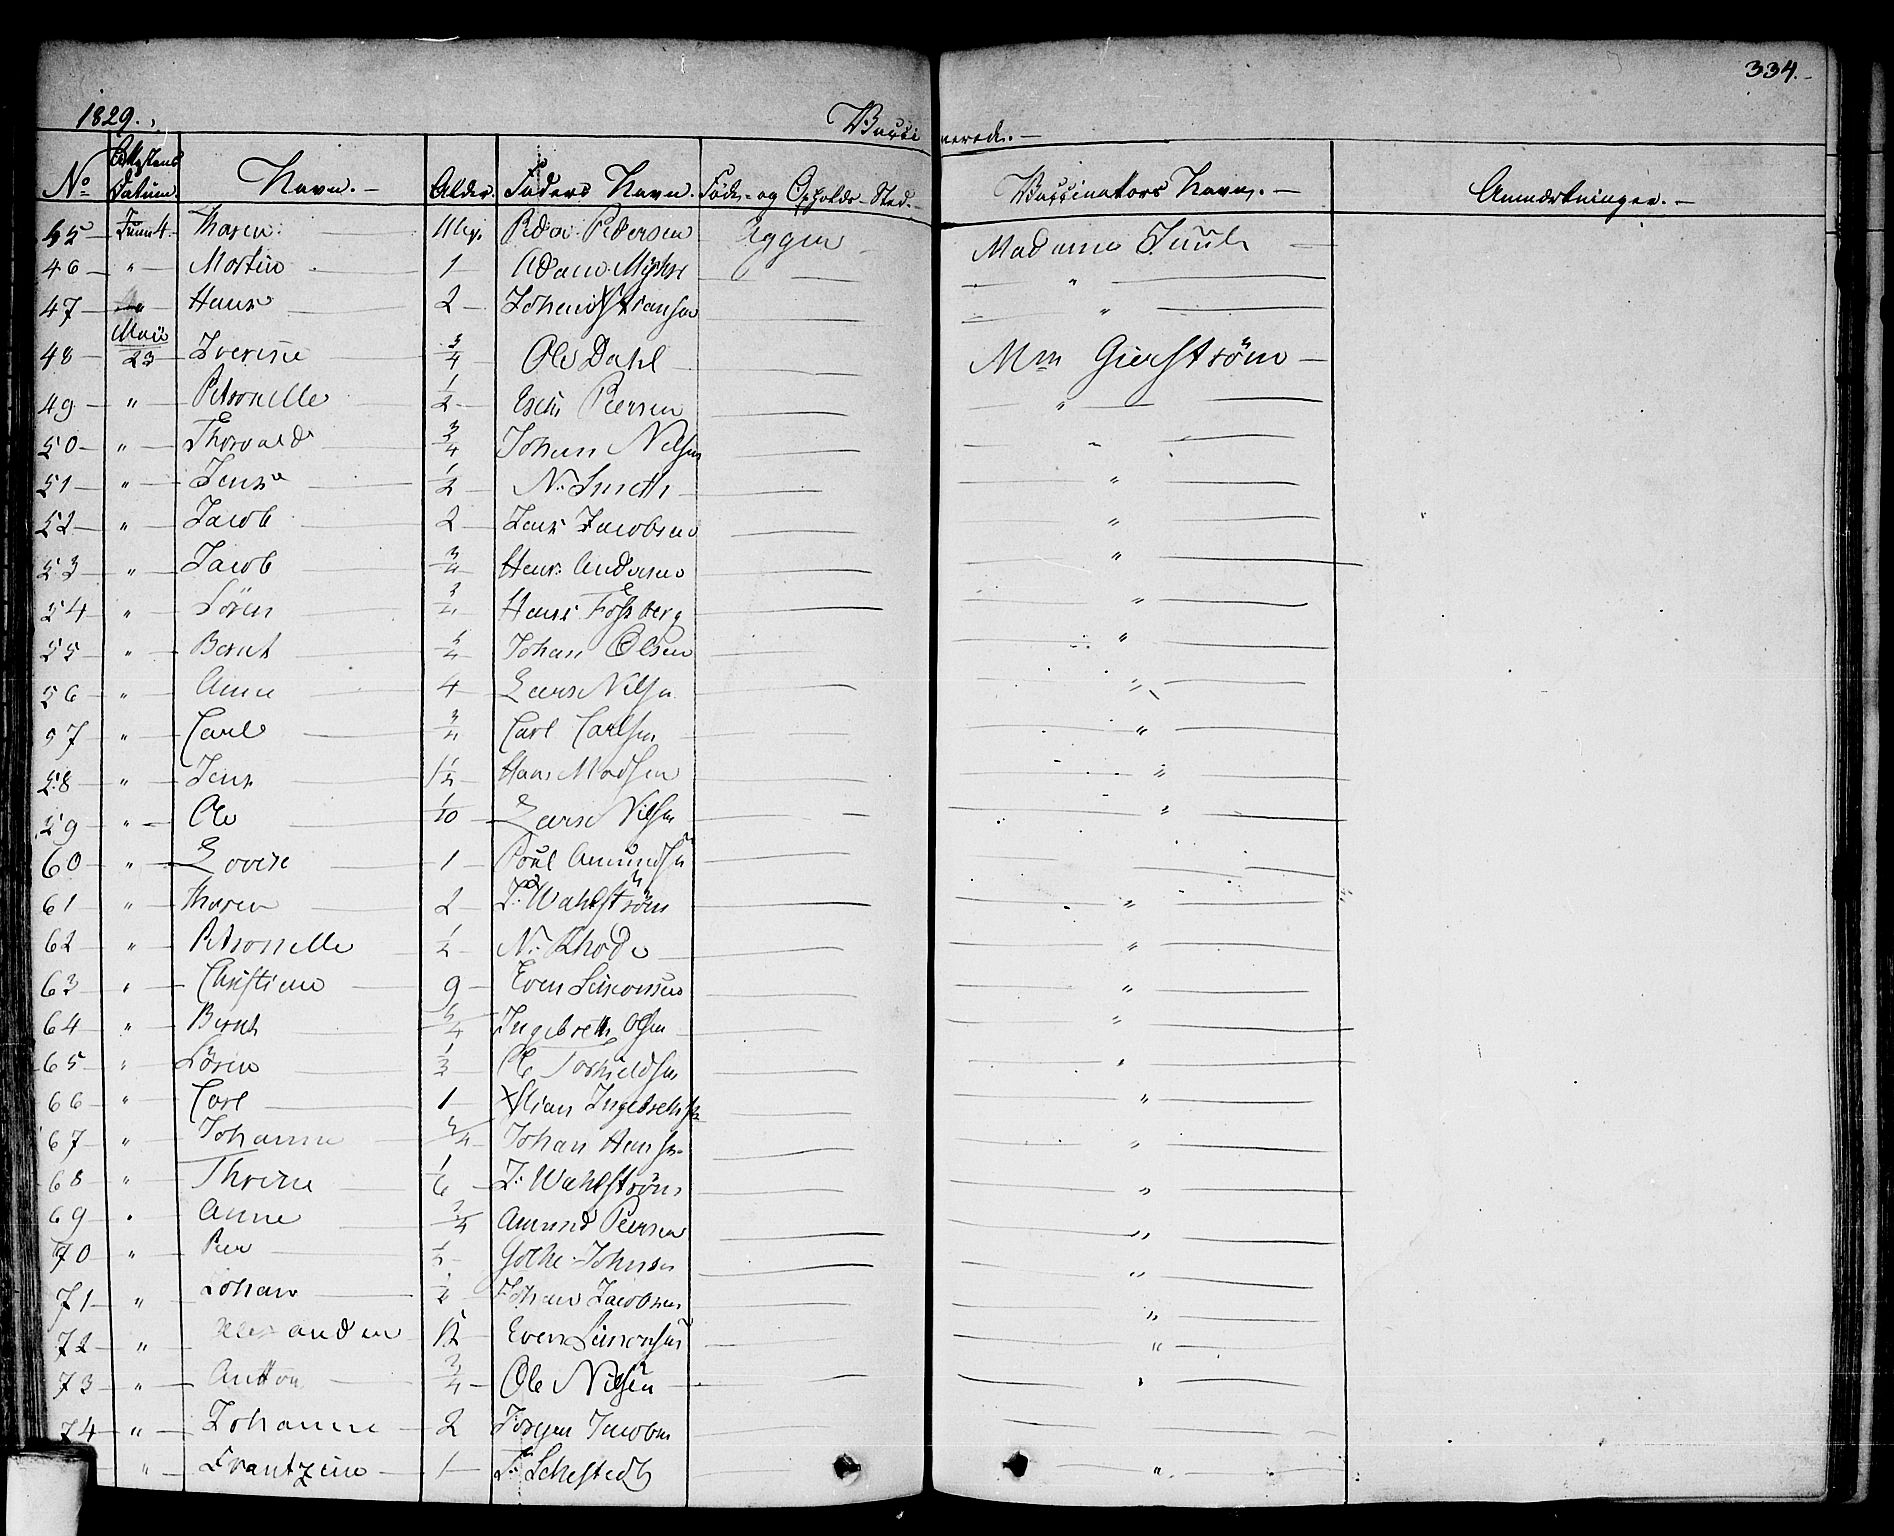 334.
1829. Vacci nerede.
No Attestens Datum. Navn. Alder. Faders Navn. Føde- og Opholds Sted. Vaccinators Navn. Anmærkninger.
45 Maren Peder Pedersen Aggen Madame Juul
46 " Martin 1 Adam "
47 " Hans 2 "
48 Maii 23 Lverine 3/4 Ole Dahl Mm Gierstrøm
49 " Petronelle 1/2 Peersen "
50 " Thorvald 3/4 Johan Nilsen "
51 " Jens 1/2 N. Smeth "
52 " Jacob 2 Jens Jacobsen "
53 " Jacob 3/4 Hans Andersen "
54 " Sören 3/4 Hans Fossberg "
55 " Bernt 3/4 Johan Olsen "
56 " Anne 4 Lars Nilsen "
57 " Carl 3/4 Carl Carlsen "
58 " Jens 1 1/2 Hans Madsen "
59 " Ole 1/10 Lars Nilsen "
60 " Lovise 1 Poul Amundsen
61 " Maren 2 J. Wahlstrøm "
62 " Petronelle 1/2 N. Rhode "
63 " Christiane 9 Even Simonsen "
64 " Bernt 3/4 Ingebreth Olsen "
65 " Sören 1/2 Ole Torkieldsen "
66 " Carl 1 Stian Ingebrethsen "
67 " Johanne 3/4 Johan Hansen "
68 " Thrine 1/6 J. Wahlstrøm "
69 " Anne 3/4 Amund Peersen "
70 " Peer 1/2 Gothe Johnsen "
71 " Johan 1/2 Johan Jacobsen "
72 " Alexander 12 Even Simonsen "
73 " Anthon 3/4 Ole Nilsen "
74 " Johanne 2 Jørgen Jacobsen
" Frantzine 1 "